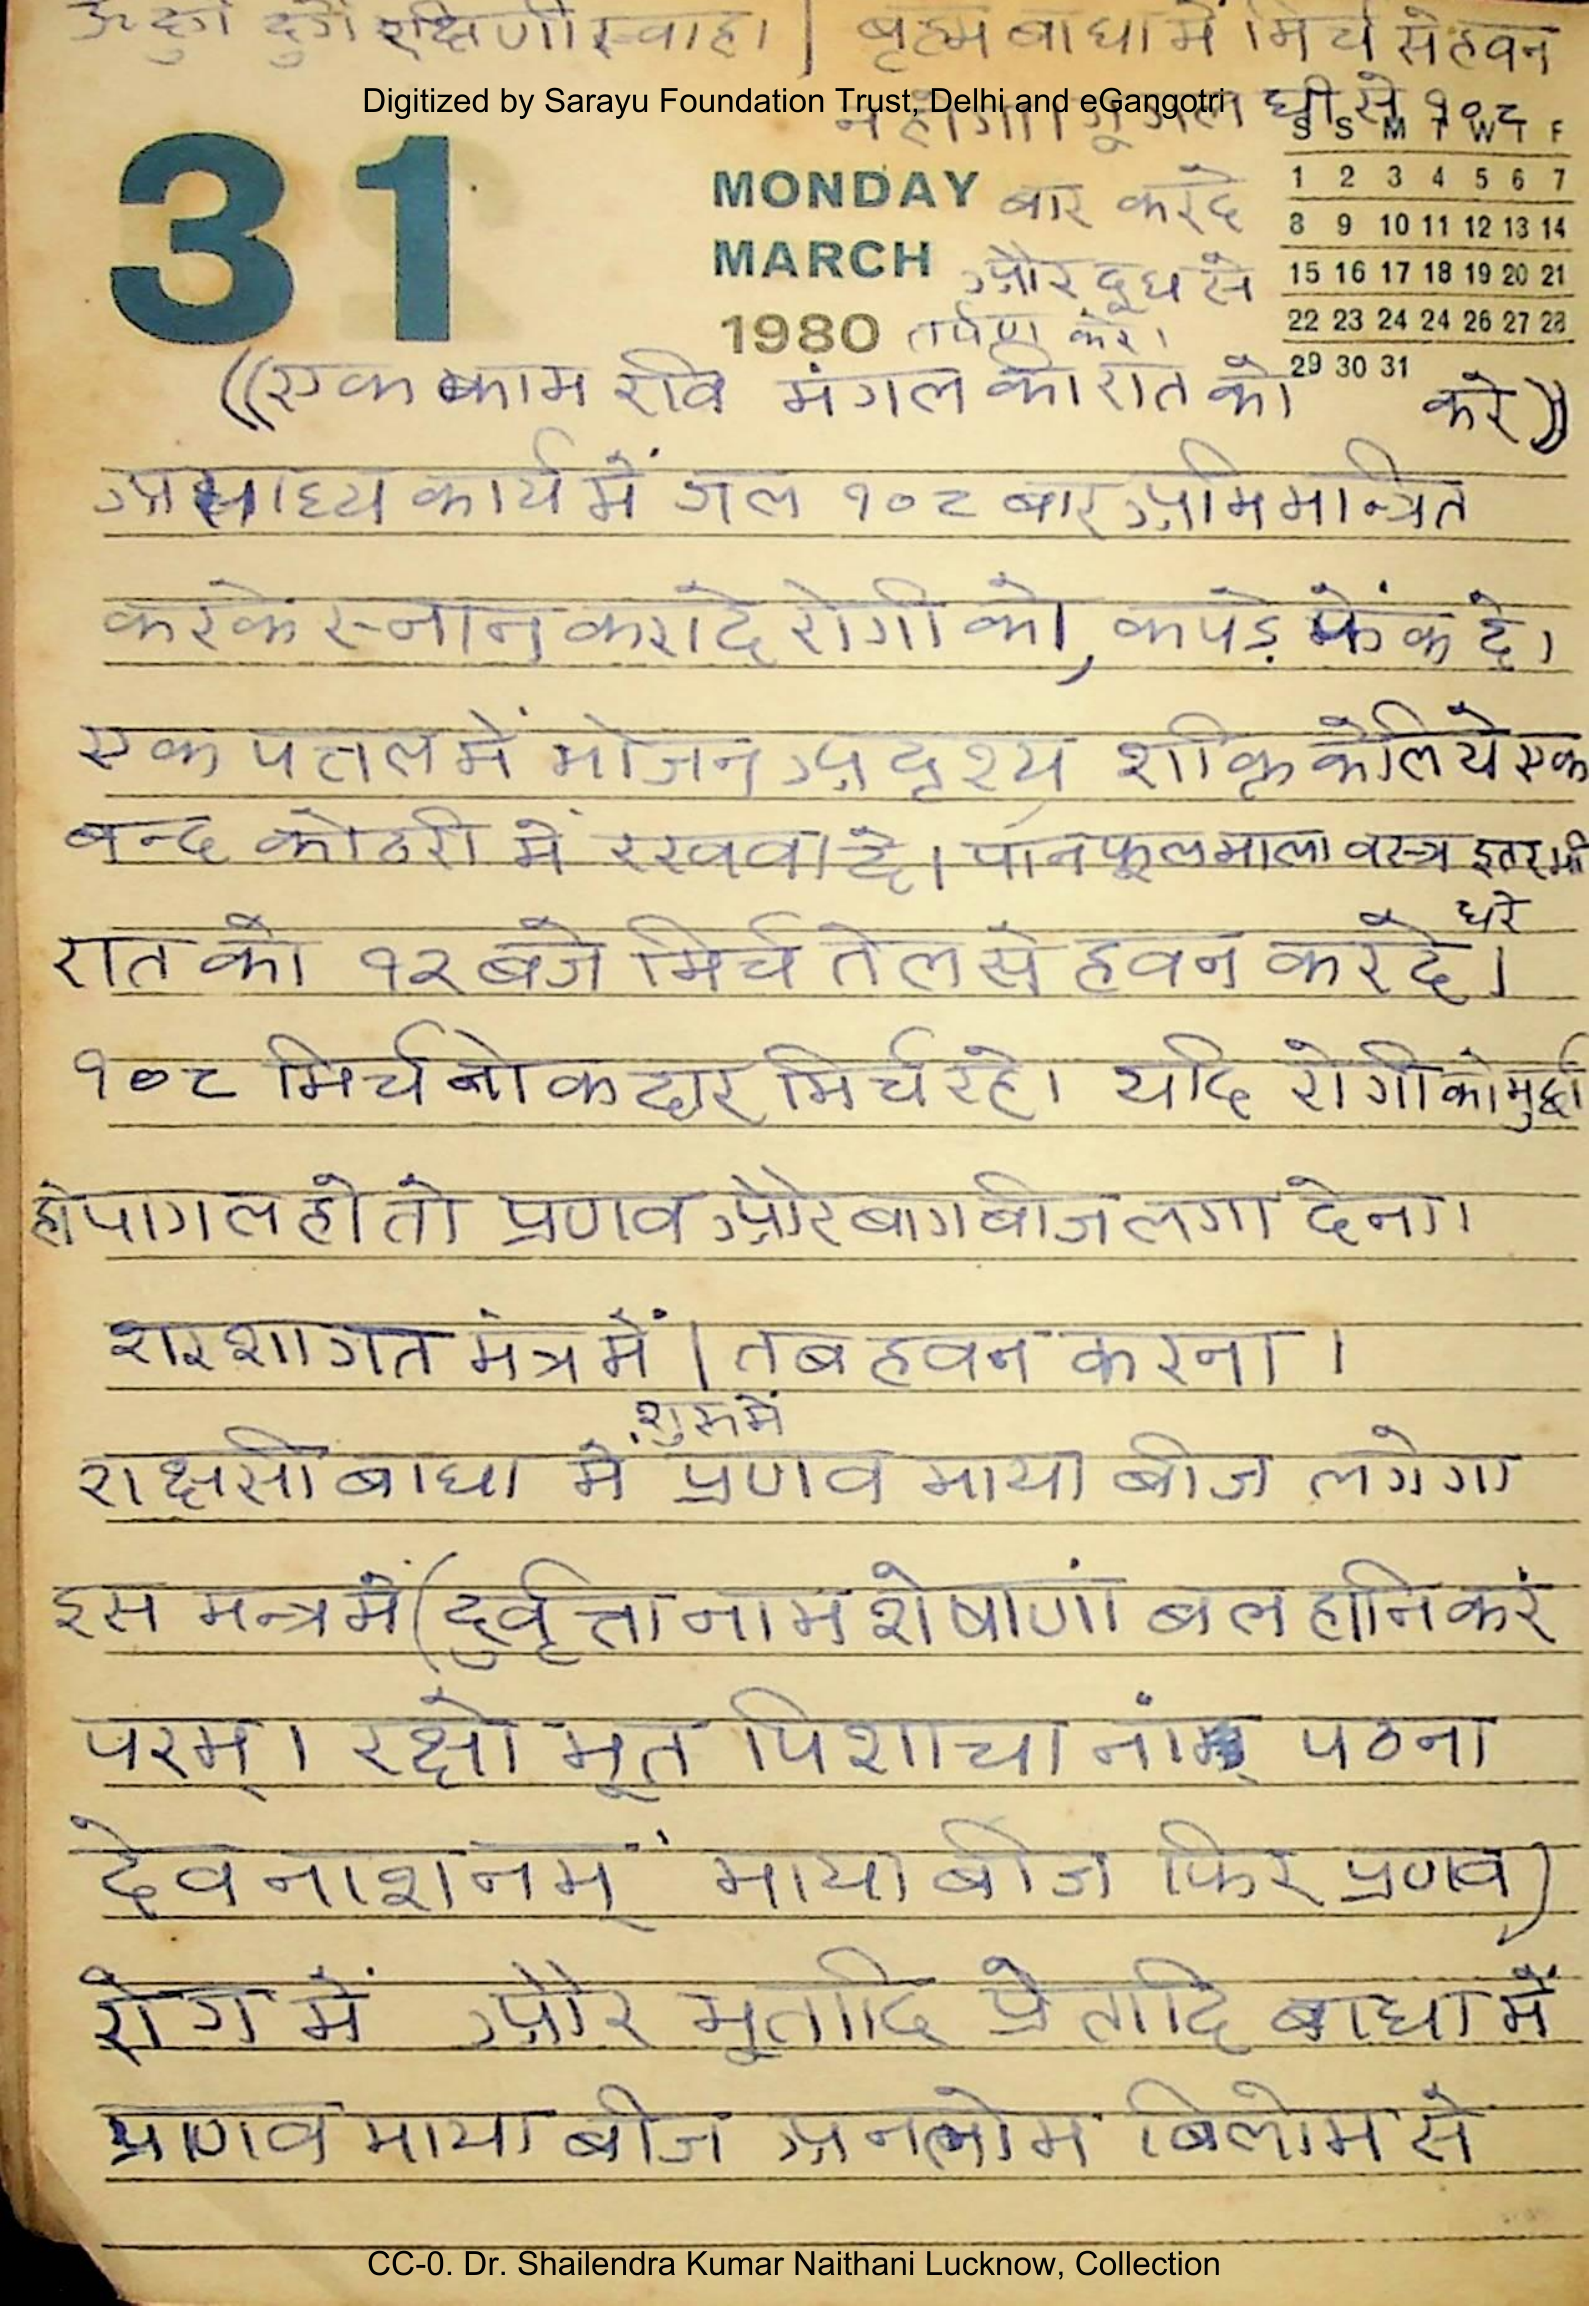 ॐ दुर्गे दुर्गे रक्षिणी स्वाहा | बृह्म बाधा में मिर्च से हवन
Digitized by Sarayu Foundation Trust, Delhi and eGangotri
न होगा। गूगल घी से १०८
31
MONDAY बार कर दे
MARCH और दूध से
1980 तर्पण करे।
S S M T W T F
1 2 3 4 5 6 7
8 9 10 11 12 13 14
15 16 17 18 19 20 21
22 23 24 24 26 27 28
29 30 31
((एक काम रवि मंगल की रात को करे))
असाध्य कार्य में जल १०८ बार अभिमान्त्रित
करके स्नान करा दे रोगी को, कपड़े फेंक दे।
एक पत्तल में भोजन अदृश्य शक्ति के लिये एक
बन्द कोठरी में रखवा दे। पान फूल माला वस्त्र इतर भी
धरे
रात को १२ बजे मिर्च तेल से हवन कर दे।
१०८ मिर्च नोकदार मिर्च रहे। यदि रोगी को मुर्छा
हो पागल हो तो प्रणव और बाग बीज लगा देना।
शरणागत मंत्र में | तब हवन करना।
शुरू में
राक्षसी बाधा में प्रणव माया बीज लगेगा
इस मन्त्र में (दुर्वृत्तानामशेषाणां बलहानिकरं
परम्। रक्षोभूत पिशाचानां पठना
देव नाशनम् माया बीज फिर प्रणव)
रोग में और भूतादि प्रेतादि बाधा में
प्रणव माया बीज अनलोम बिलोम से
CC-0. Dr. Shailendra Kumar Naithani Lucknow, Collection